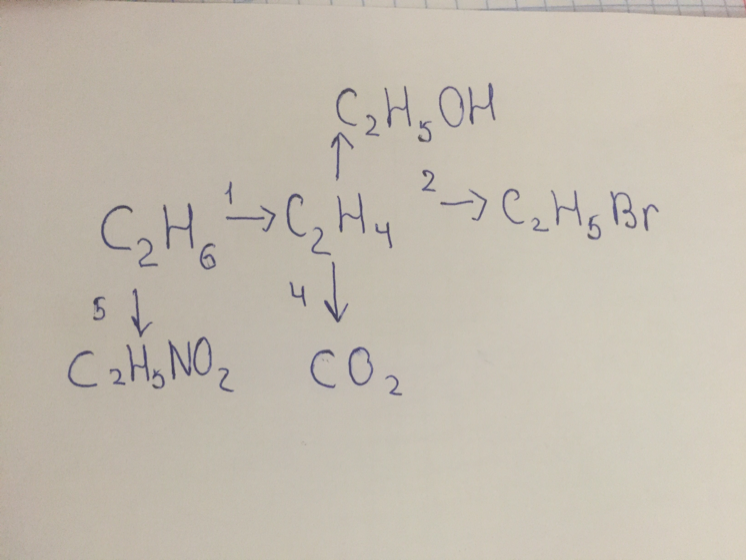 C₂H₅OH
↑
C₂H₆ 1→ C₂H₄ 2→ C₂H₅Br
5↓ 4↓
C₂H₅NO₂ CO₂